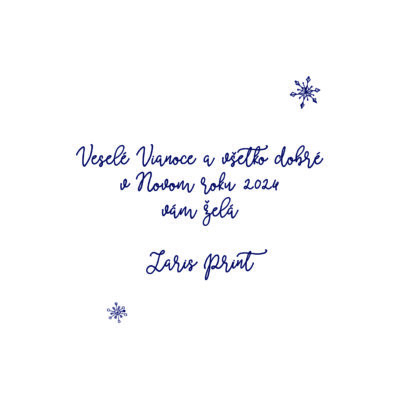 Veselé Vianoce a všetko dobré
v Novom roku 2024
vám želá
Laris print